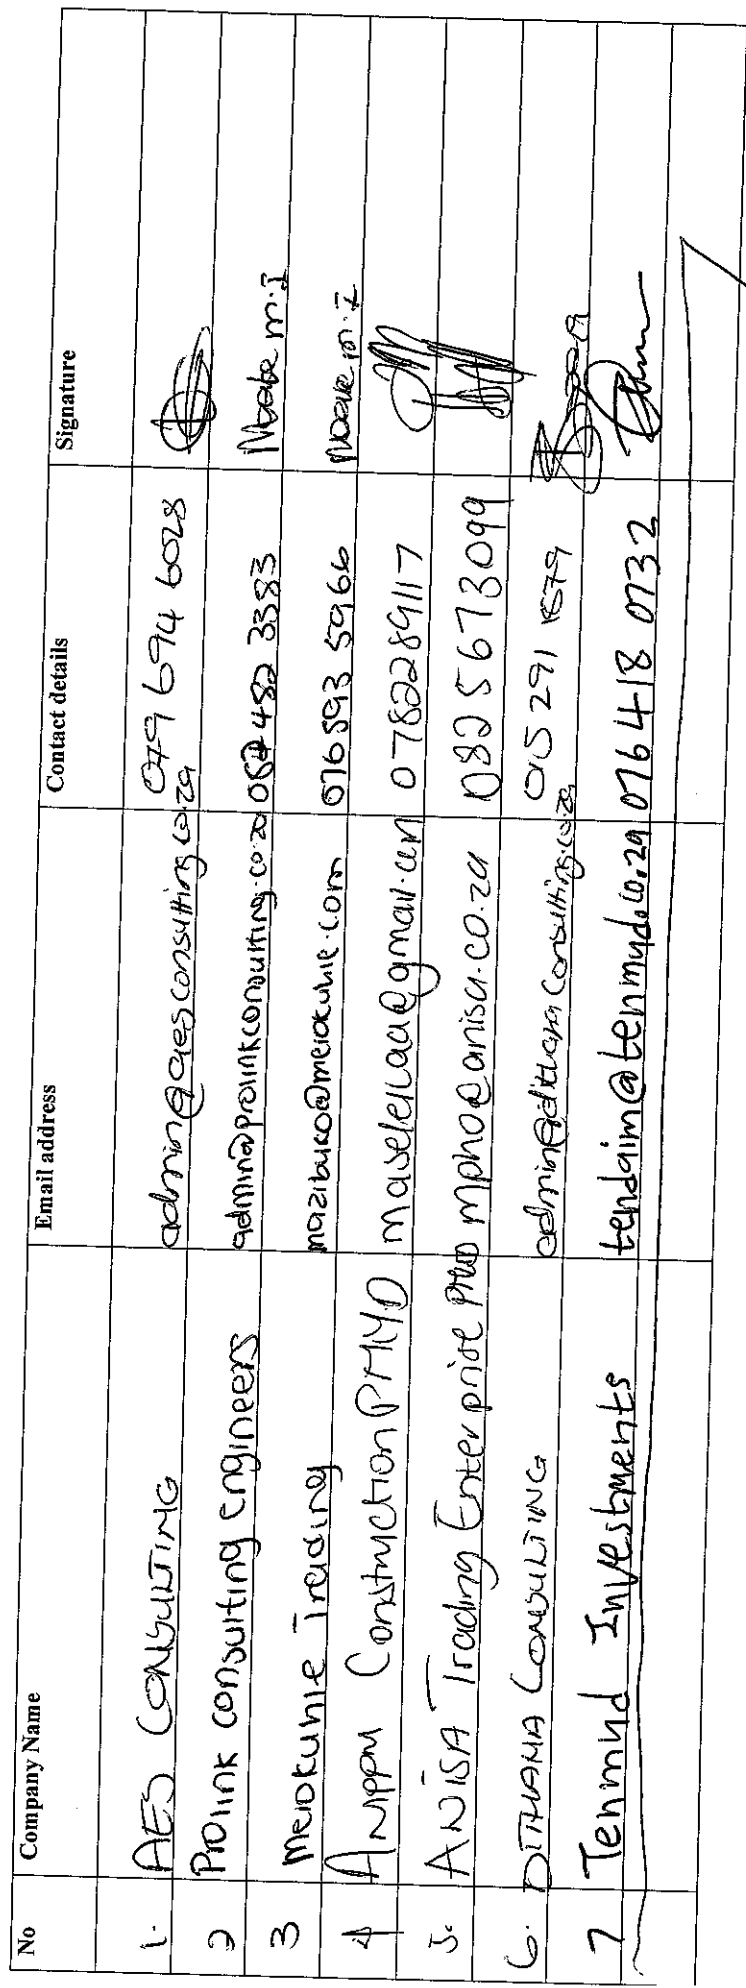 No Company Name Email address Contact details Signature
1. AES CONSULTING admin@aesconsulting.co.za 079 694 6028
2 Prolink consulting engineers admin@prolinkconsulting.co.za 482 3383
3 Melokuhle Trading mazibuko@melokuhle.com 076593 5966
4 Construction PTYLTD maselelaa@gmail.com 0782289117
5. ANISA Trading Enterprise mpho@anisa.co.za 082 5673099
6. DITHAMA CONSULTING 015 291
7 Tenmyd Investments tendaim@tenmyd.co.za 076 418 0732